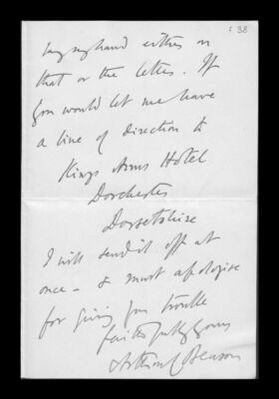 f. 38
hand either on
that or the letter. If
you would let me have
a line of direction to
Kings Arms Hotel
Dorchester
Dorsetshire
I will send it off at
once - & must apologise
for giving you trouble
faithfully yours
Arthur C Benson